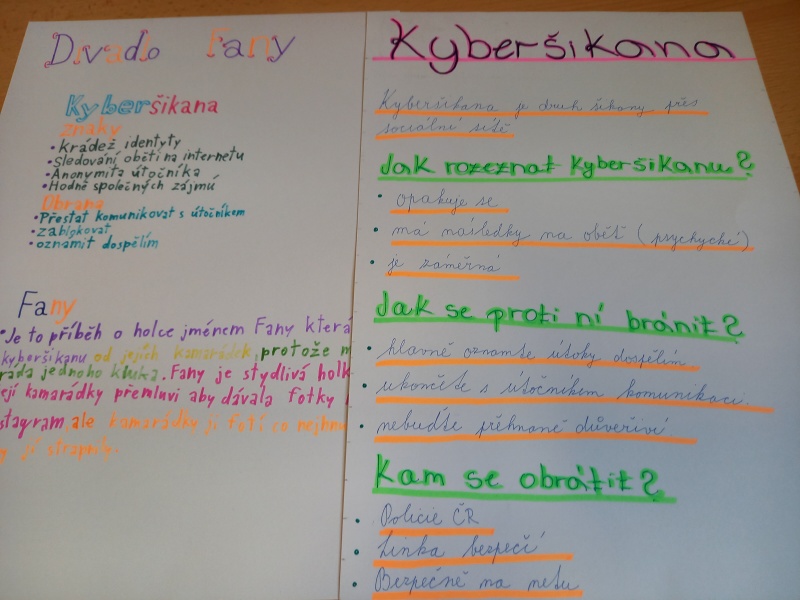 Divadlo Fany
Kyberšikana
znaky
• Krádež identyty
• Sledování oběti na internetu
• Anonymita útočníka
• Hodně společných zájmú
Obrana
• Přestat komunikovat s útočníkem
• zablokovat
• oznámit dospělím
Fany
• Je to příběh o holce jménem Fany která
kyberšikanu od jejích kamarádek, protože
ráda jednoho kluka. Fany je stydlivá holk
její kamarádky přemluví aby dávala fotky
stagram, ale kamarádky jí fotí co nejhů
jí strapnily.
Kyberšikana
Kyberšikana je druh šikany přes
sociální sítě
Jak rozeznat Kyberšikanu?
• opakuje se
• má následky na oběť (psychycké)
• je záměrná
Jak se proti ní bránit?
• hlavně oznamte útoky dospělím
• ukončete s útočníkem komunikaci.
• nebuďte přehnaně důvěřiví
Kam se obrátit?
• Policie ČR
• Linka bezpečí
• Bezpečně na netu